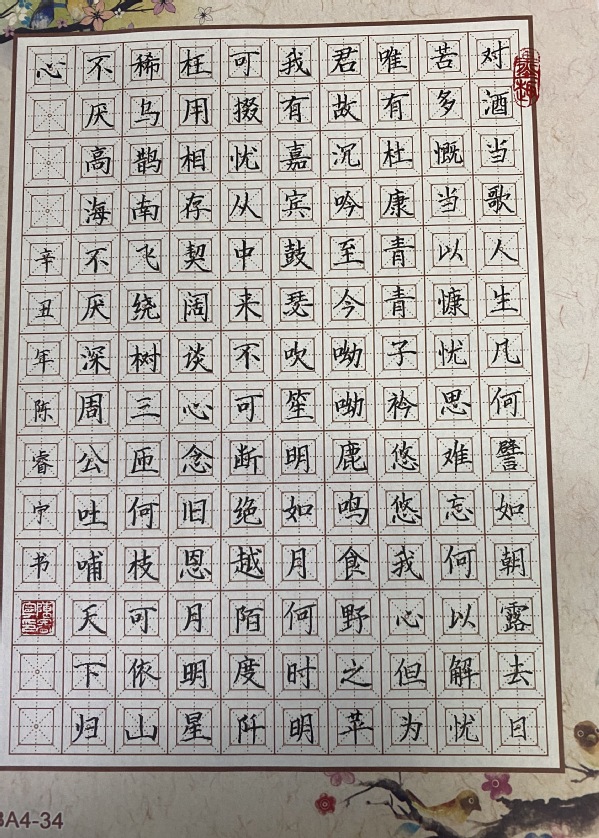 对酒当歌人生凡何譬如朝露去日
苦多慨当以慷忧思难忘何以解忧
唯有杜康青青子衿悠悠我心但为
君故沉吟至今呦呦鹿鸣食野之苹
我有嘉宾鼓瑟吹笙明如月何时明
可掇忧从中来不可断绝越陌度阡
枉用相存契阔谈心念旧恩月明星
稀乌鹊南飞绕树三匝何枝可依山
不厌高海不厌深周公吐哺天下归
心
辛丑年陈睿宁书
BA4-34